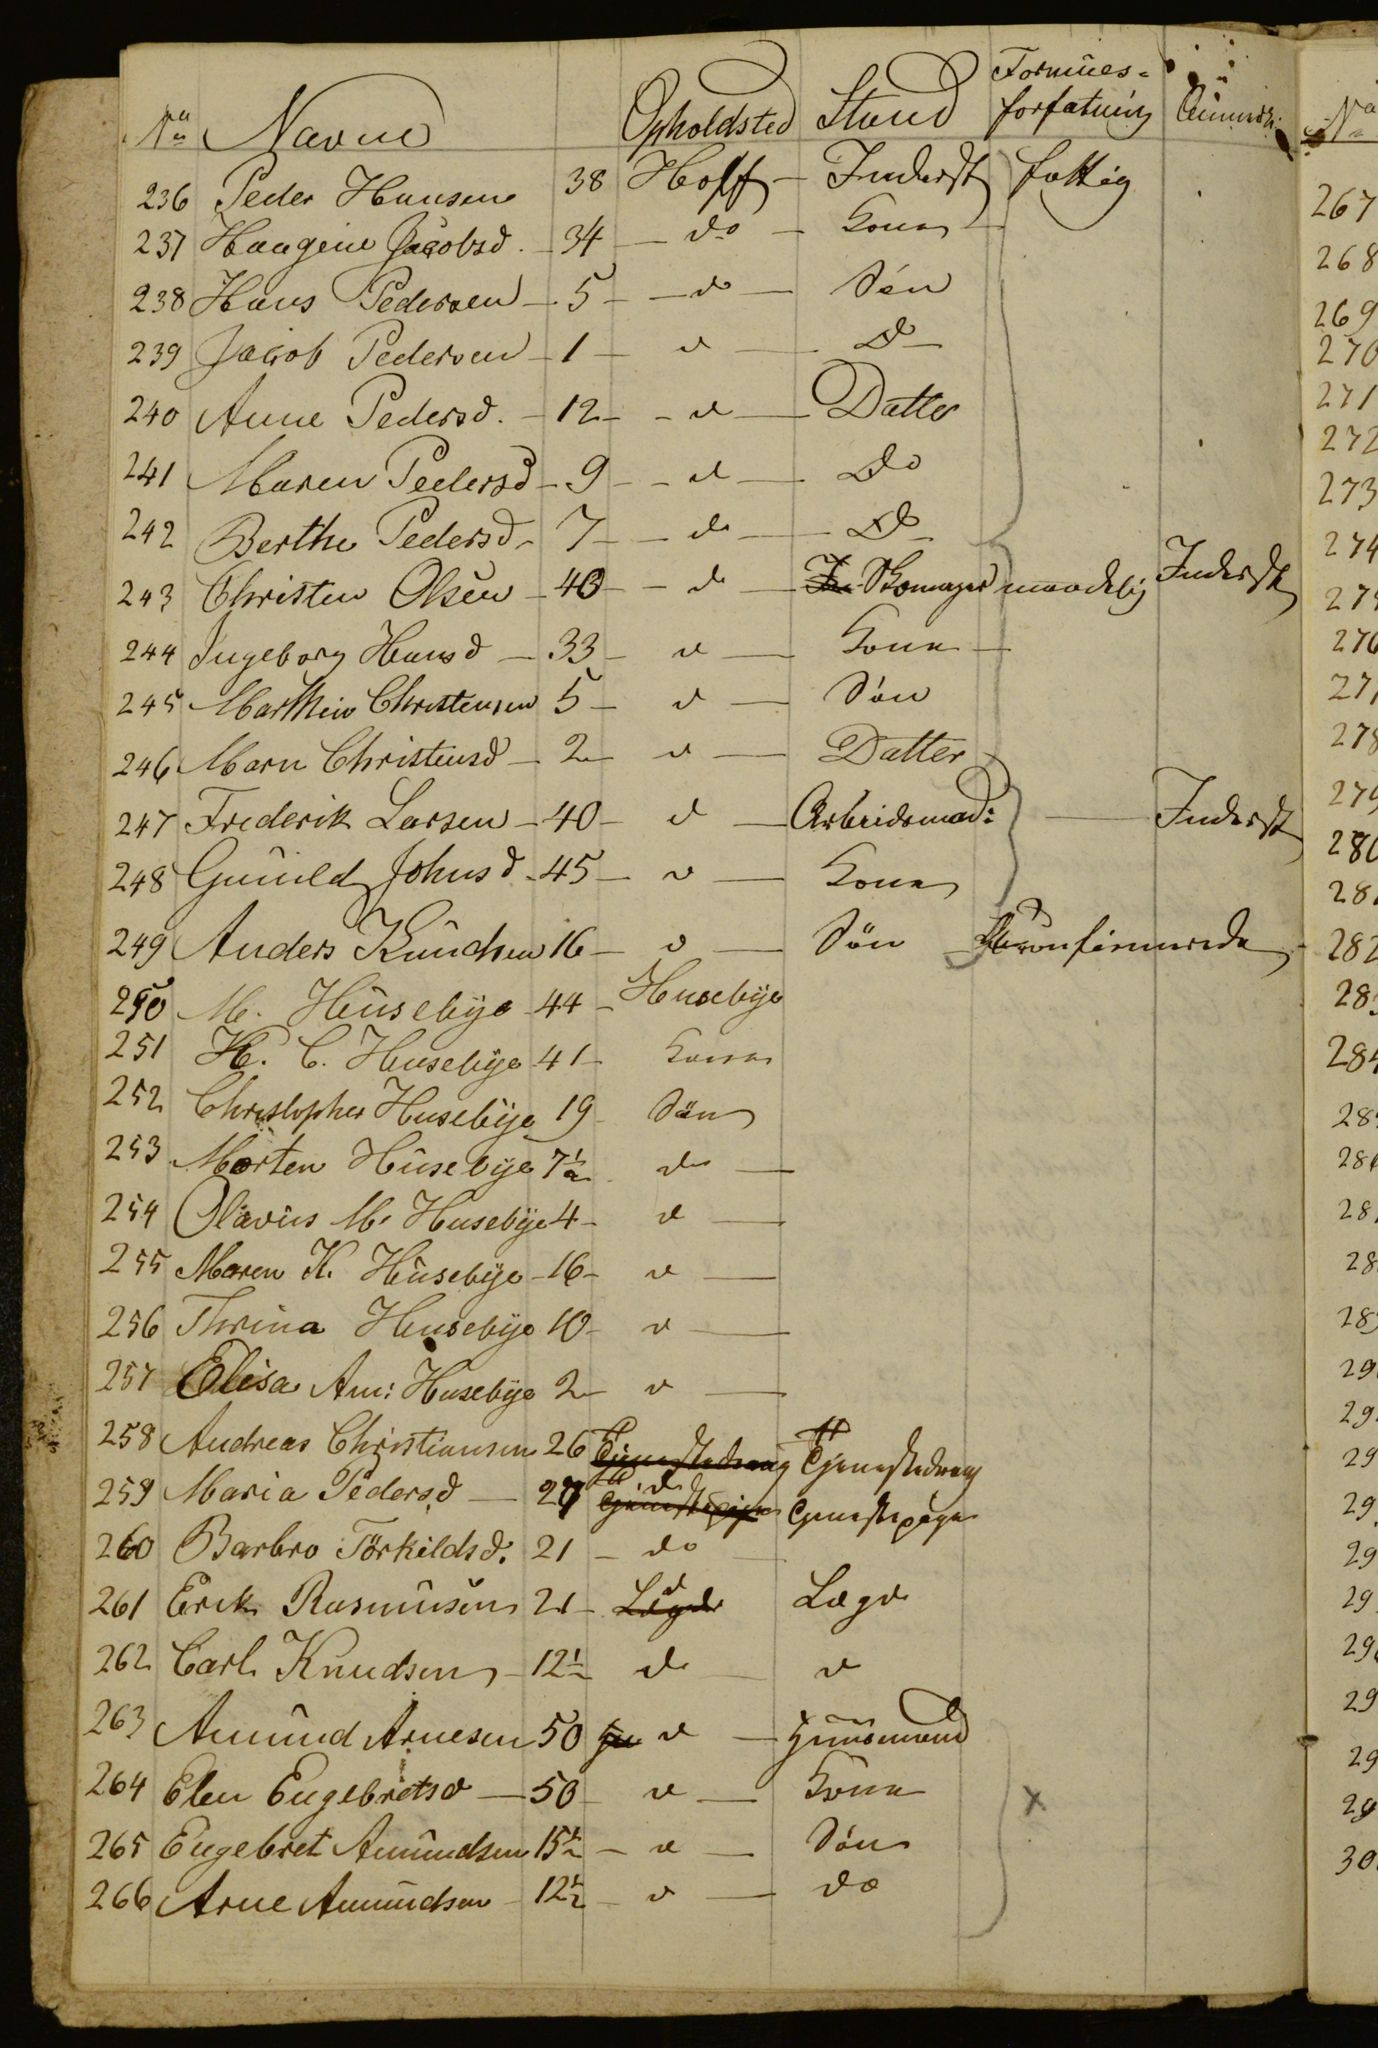 No Navne Opholdsted Stand Formues=
forfatning Anmærk:
236 Peder Hansen 38 Hoff Inderst fattig
237 Haagine Jacobsd. 34 do Kone
238 Hans Pedersen 5 do Søn
239 Jacob Pedersen 1 d Do
240 Anne Pedersd. 12 d Datter
241 Maren Pedersd 9 d Do
242 Berthe Pedersd 7 do Do
243 Christen Olsen 40 d In Skomager maadelig Inderst
244 Ingeborg Hansd 33 d Kone
245 Marthin Christensen 5 d Søn
246 Marn Christensd 2 d Datter
247 Frederik Larsen 40 d Arbeidsmad: Inderst
248 Gunild Johnsd 45 d Kone
249 Anders Knudsen 16 d Søn confirmerede
250 M. Husebye 44 Husebye
251 K. C. Husebye 41 Kone
252 Christopher Husebye 19 Søn
253 Morten Husebye 7½ do
254 Olavus M. Husebye 4 d
255 Maren K. Husebye 16 d
256 Thrina Husebye 10 d
257 Elisa Am: Husebye 2 d
258 Andreas Christiansen 26 Tjenestedreng Tjenestedreng
259 Maria Pedersd 27 Tjenestepige d Tjenestepige
260 Barbro Törkildsd. 21 do
261 Erik Rasmusen 21 Lægd d Lægd
262 Carl Knudsen 12½ do d
263 Amund Arnesen 50 d Huusmand
264 Elen Engebretsd 50 d Kone
265 Engebret Amundsen 15½ d Søn
266 Arne Amundsen 12½ d do
No
267
268
269
270
271
272
273
274
276
278
279
282